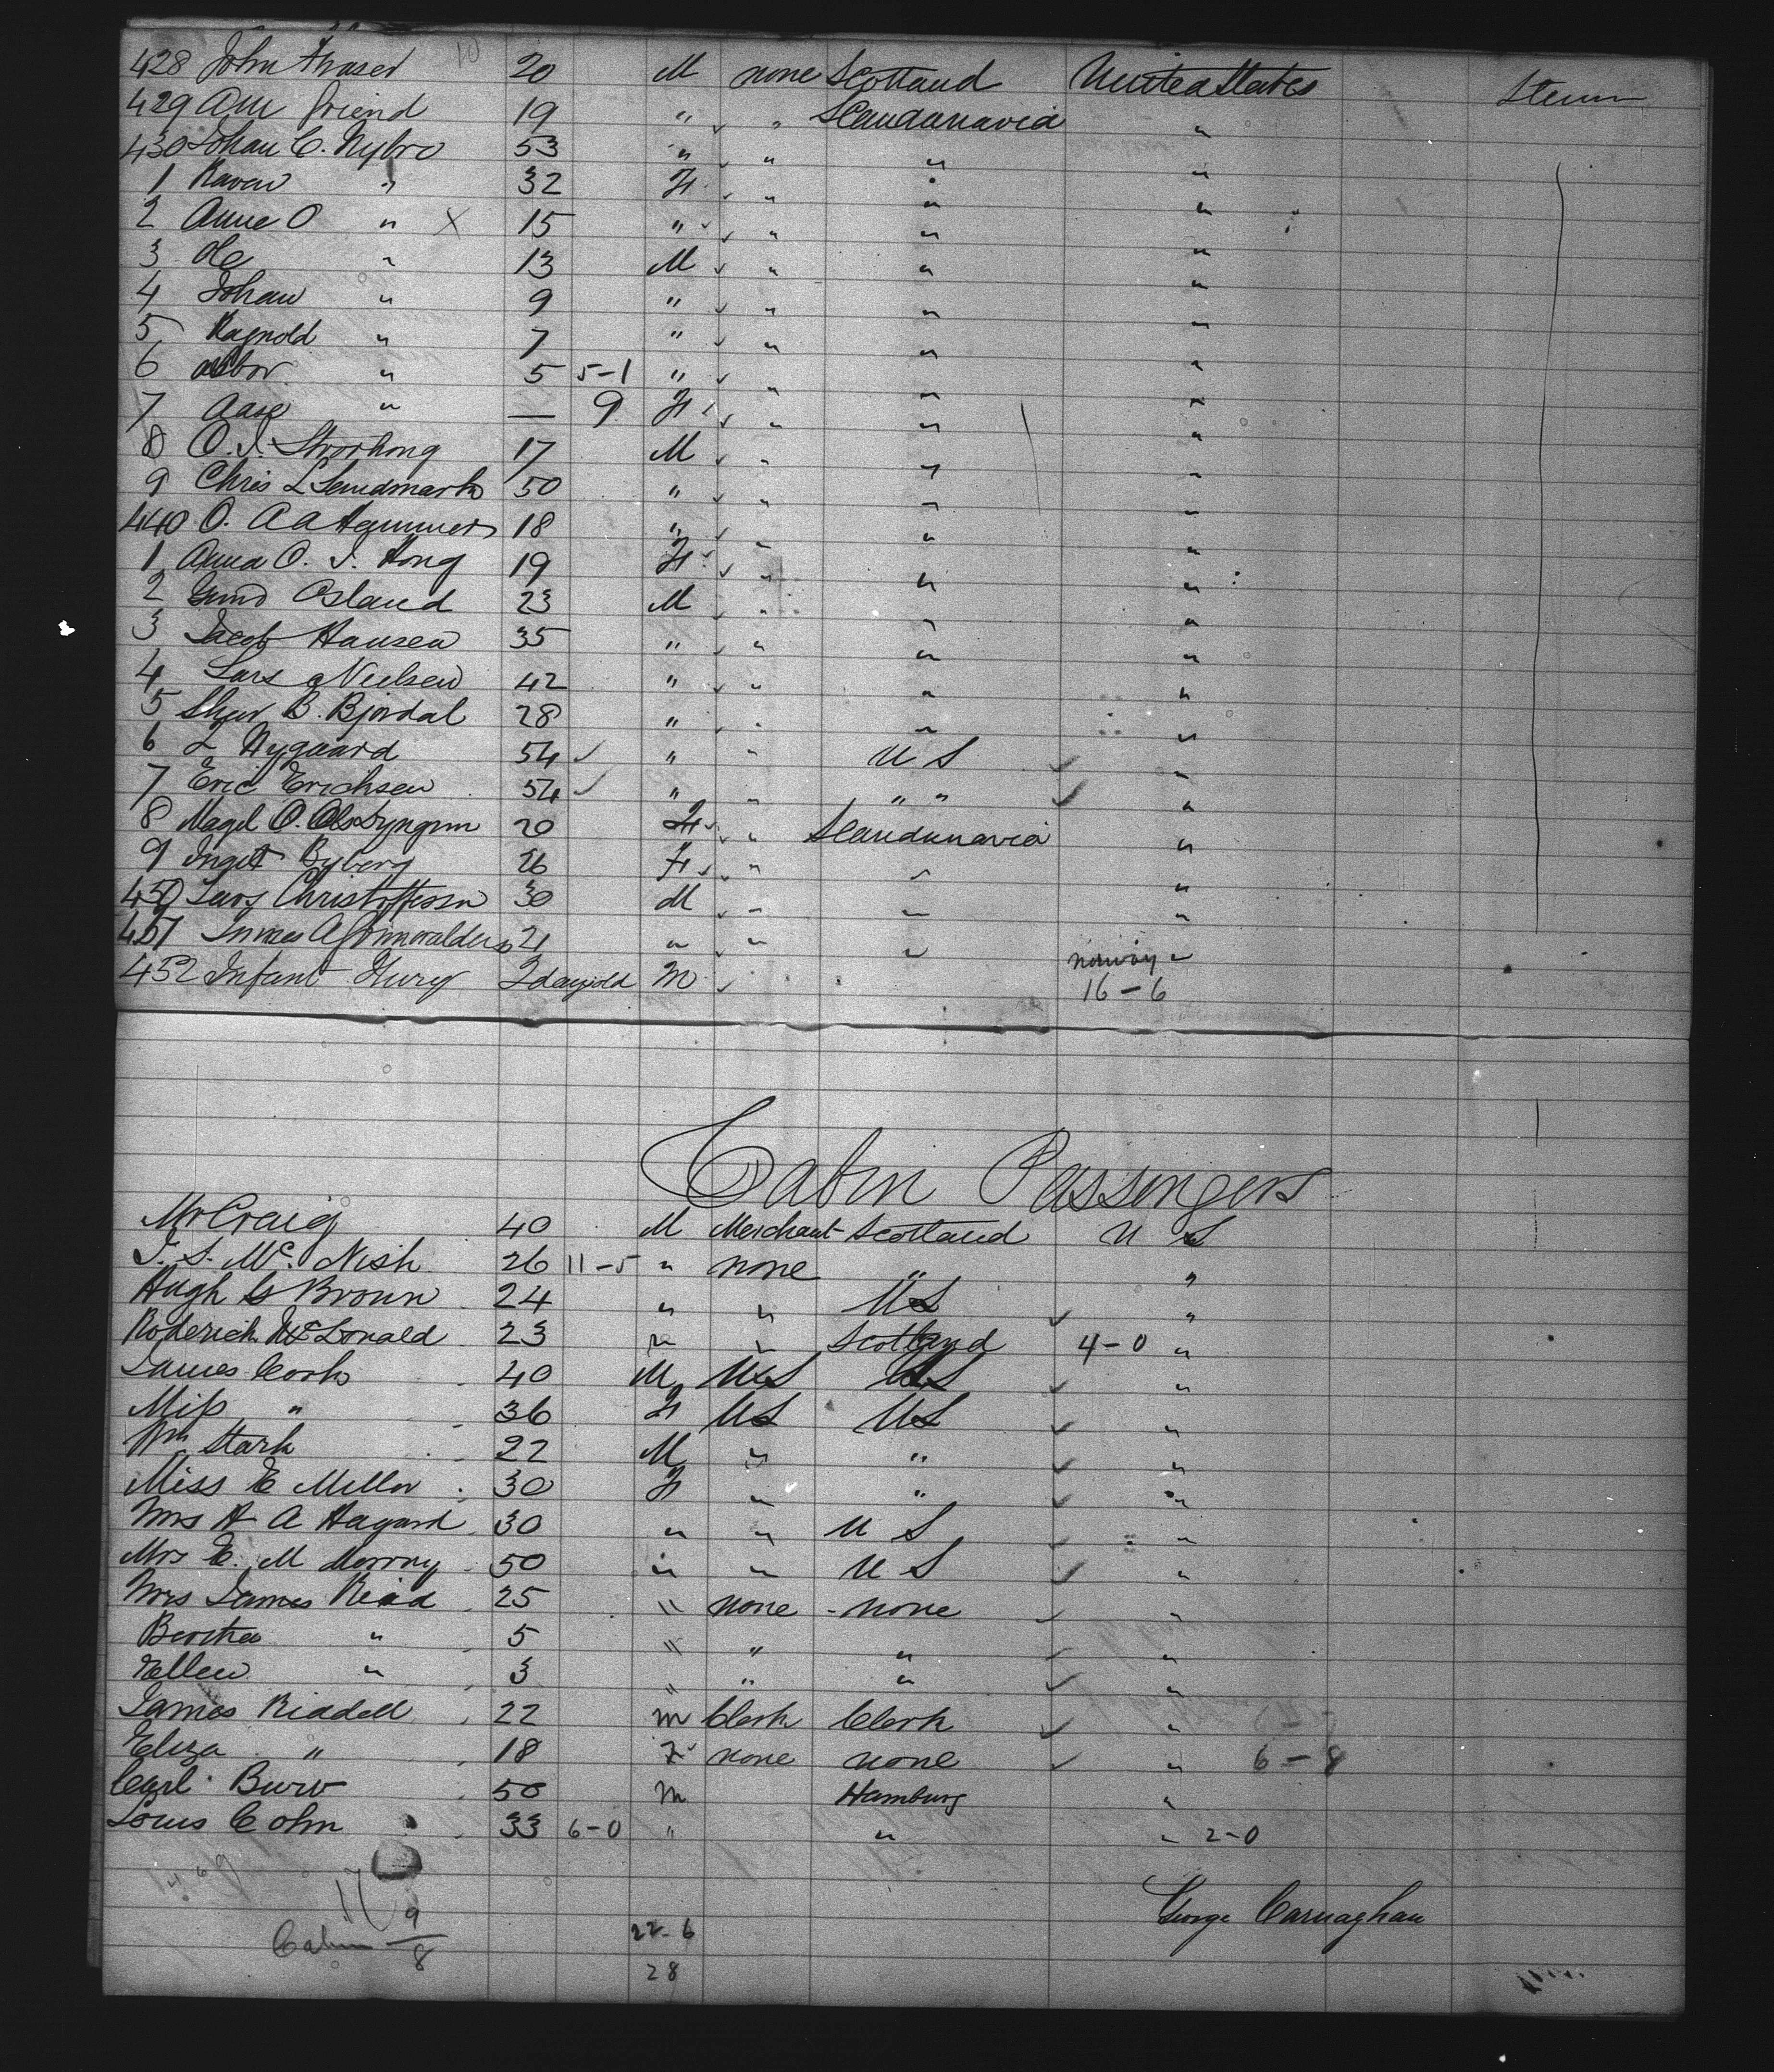 428 John Fraser 20 M none Scotland United States Steer
429 Am Friend 19 " " Scandanavia "
430 Johan C. Nybro 53 " " " "
1 Karen " 32 F " " "
2 Anne O " X 15 " " " "
3 Ole " 13 M " " "
4 Johan " 9 " " " "
5 Ragnold " 7 " " " "
6 " 5 5-1 " " " "
7 Aase " — 9 F " " "
8 O. I. Storhong 17 M " " "
9 Chris L Sandmark 50 " " " "
440 O. A a Hammer 18 " " " "
1 Anna O. I. Hong 19 F " " "
2 Osland 23 M " " "
3 Jacob Hansen 35 " " " "
4 Lars Nielsen 42 " " " "
5 B. Bjordal 28 " " " "
6 L Nygaard 54 " " U S "
7 Eric Erichsen 54 " " " " "
8 Magl O. 20 F " Scandunavia "
9 Ingbt Byberg 26 F " " "
450 Lars Christoffersen 30 M " " "
451 A 21 " " " norway "
452 Infant Hury 2 days old M 16-6
Cabin Passengers
Mr Craig 40 M Merchant Scotland U S
J. S. Mc. Nish 26 11-5 " none " "
Hugh G Brown 24 " " US "
Roderick McDonald 23 " " Scotland 4-0 "
James Cork 40 M US US "
Miss " 36 F US US "
Wm Stark 22 M " " "
Miss E Miller 30 F " " "
Mrs H A Hagard 30 " " U S "
Mrs E. M Murray 50 " " U S "
Mrs James Reid 25 " none - none "
Bertha " 5 " " " "
Ellen " 3 " " " "
James Riddell 22 m Clerk Clerk "
Eliza " 18 F none none " 6-8
Carl Burr 50 m Hamburg "
Louis Cohn 33 6-0 " " " 2-0
17
9
George Carnaghan
Cabin 8
22-6
28